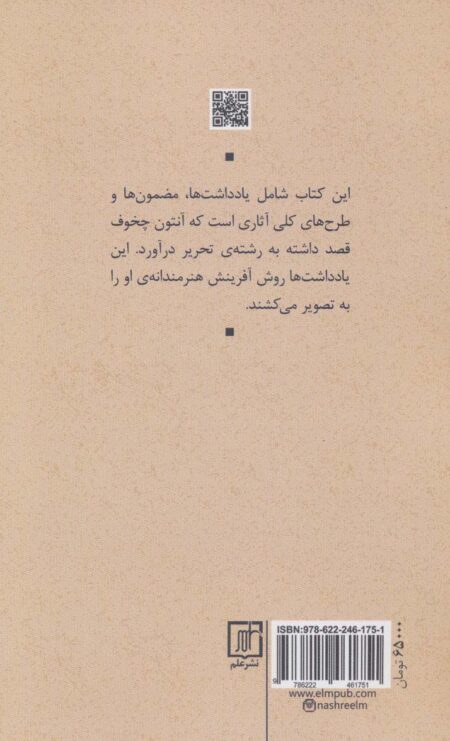 این کتاب شامل یادداشت‌ها، مضمون‌ها و
طرح‌های کلی آثاری است که آنتون چخوف
قصد داشته به رشته‌ی تحریر درآورد. این
یادداشت‌ها روش آفرینش هنرمندانه‌ی او را
به تصویر می‌کشند.
نشر علم
ISBN:978-622-246-175-1
9 786222 461751
www.elmpub.com
nashreelm
۶۵۰۰۰ تومان